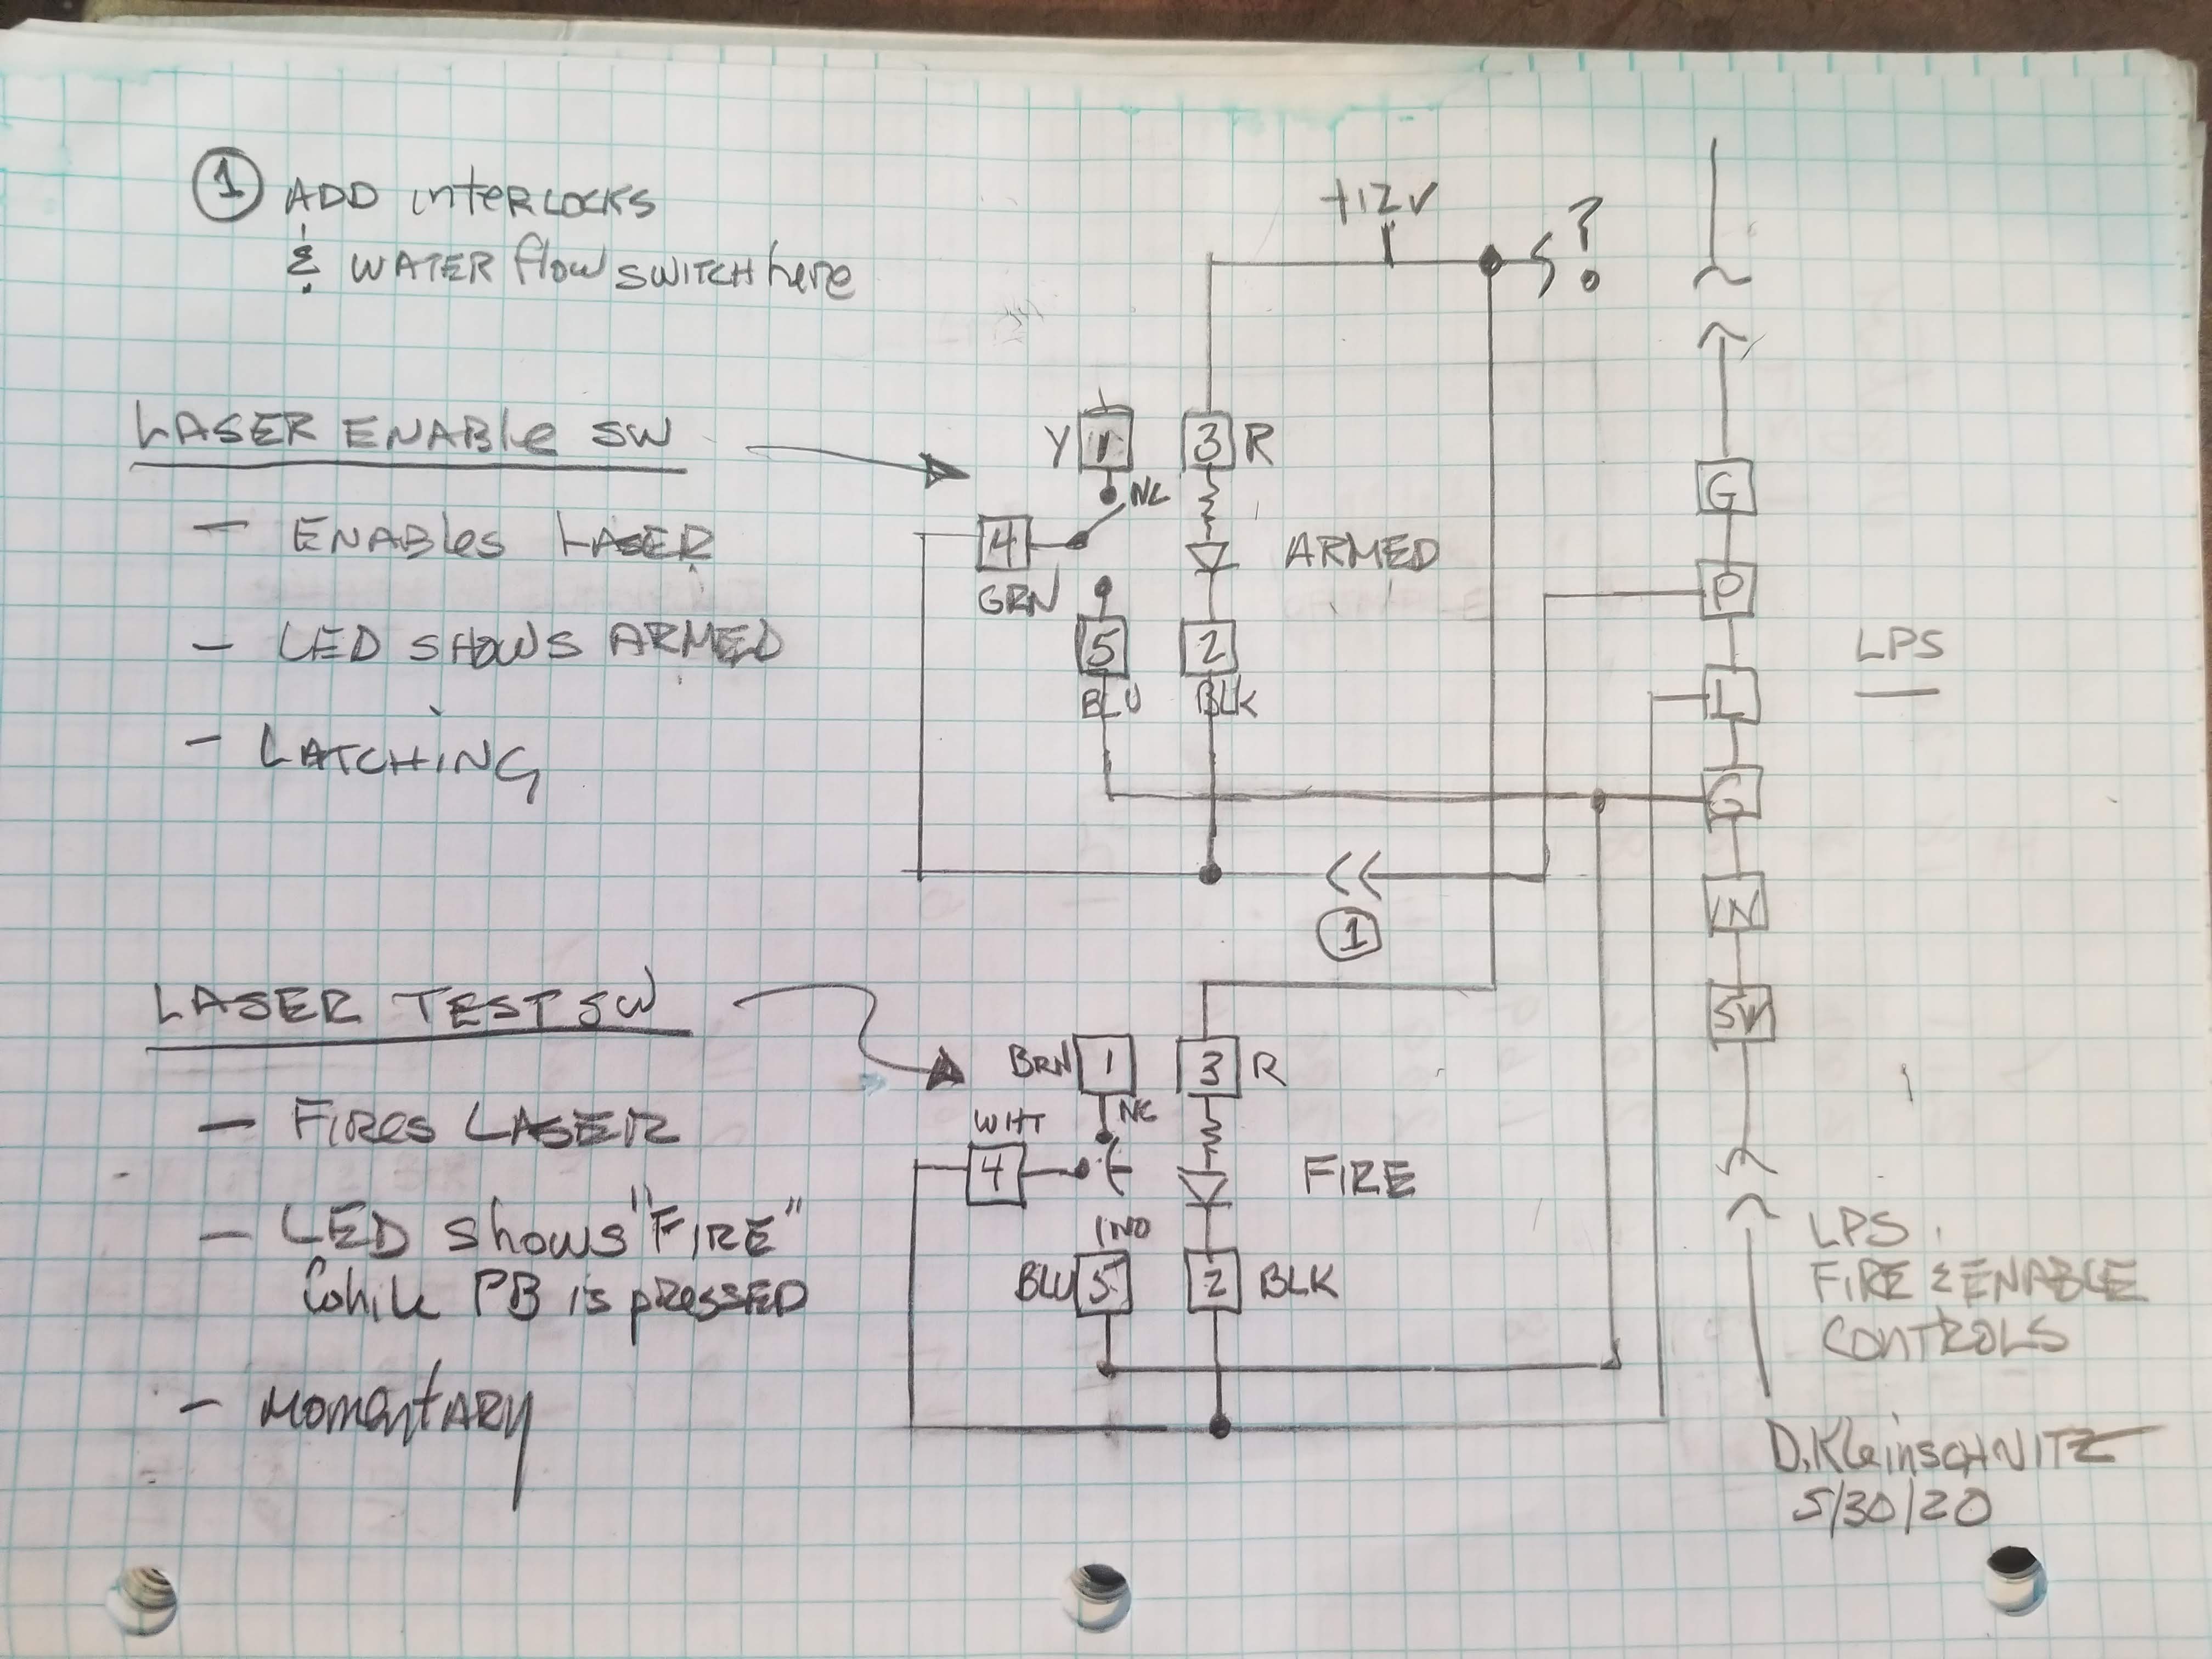 ① ADD interLOCKS
& WATER flow SWITCH here
+12V
?
LASER ENABLE SW
Y
1
3
R
NC
G
- ENABLES LASER
4
ARMED
P
GRN
- LED SHOWS ARMED
5
2
LPS
BLU
BLK
L
- LATCHING
G
1
IN
LASER TEST SW
SW
BRN
1
3
R
- FIRES LASER
WHT
NC
4
FIRE
- LED shows "FIRE"
while PB is pressed
NO
BLU
5
2
BLK
LPS
FIRE & ENABLE
CONTROLS
- MOMENTARY
D. KleinSCHNITZ
5/30/20